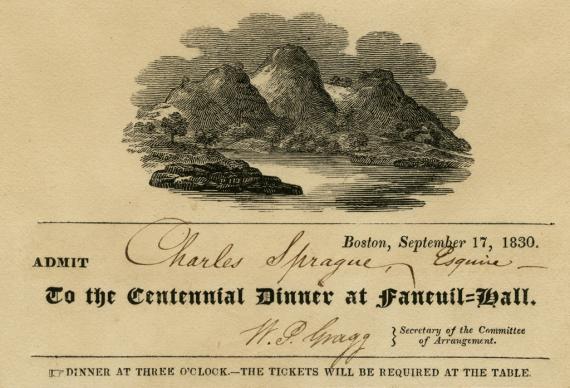 Boston, September 17, 1830.
ADMIT Charles Sprague, Esquire
To the Centennial Dinner at Faneuil-Hall.
W. P. Gragg } Secretary of the Committee
of Arrangement.
☞DINNER AT THREE O'CLOCK.—THE TICKETS WILL BE REQUIRED AT THE TABLE.